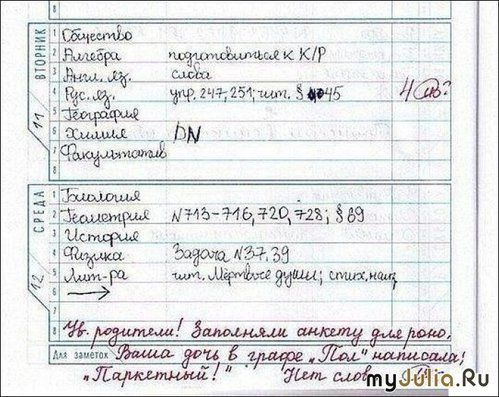 8
ВТОРНИК
11
1 Общество
2 Алгебра подготовиться к К/Р
3 Англ. яз. слова
4 Рус. яз. упр. 247, 251; чит. § 45
5 География
6 Химия
7 Факультатив
8
СРЕДА
12
1 Биология
2 Геометрия N713-716, 720, 728; § 69
3 История
4 Физика Задача N37.39
5 Лит-ра чит. Мёртвые души; стих. наиз
6
7
8 Ув. родители! Заполняли анкету для роно.
Для заметок Ваша дочь в графе „Пол" написала:
„Паркетный!" Нет слов
myJulia.Ru